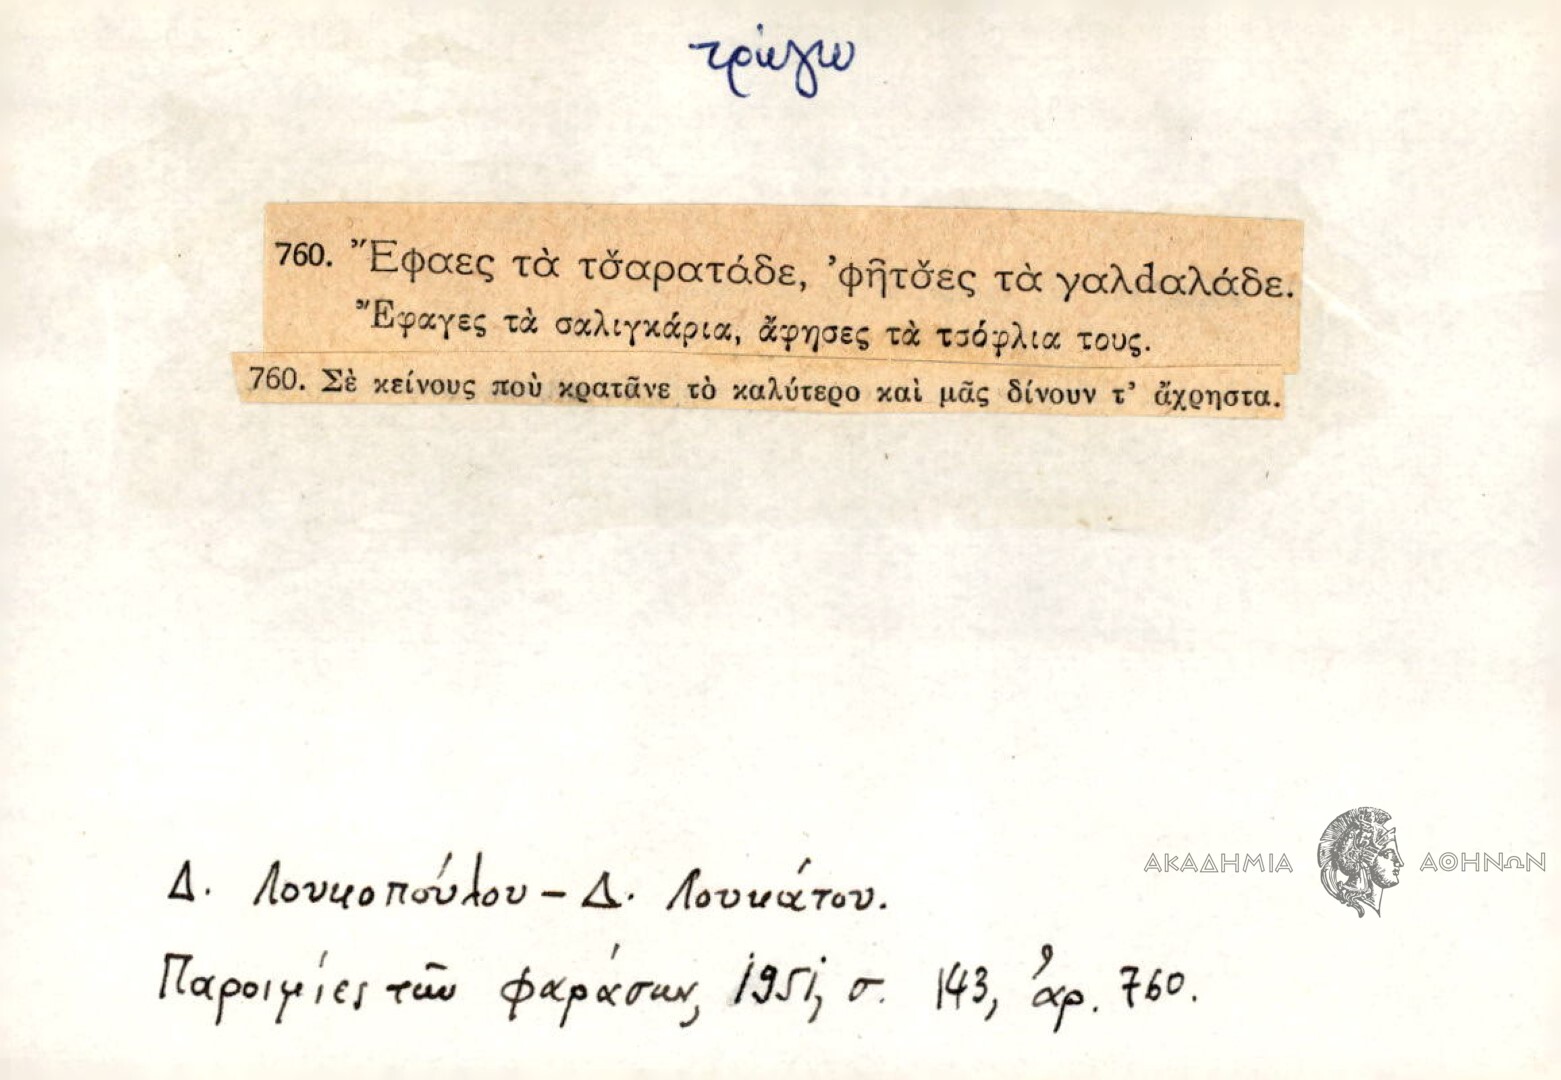 τρώγω
760. Ἔφαες τὰ τσ̌αρατάδε, ᾿φῆτσ̌ες τὰ γαλdαλάδε.
Ἔφαγες τὰ σαλιγκάρια, ἄφησες τὰ τσόφλια τους.
760. Σὲ κείνους ποὺ κρατᾶνε τὸ καλύτερο καὶ μᾶς δίνουν τ᾿ ἄχρηστα.
ΑΚΑΔΗΜΙΑ ΑΘΗΝΩΝ
Δ. Λουκοπούλου – Δ. Λουκάτου.
Παροιμίες τῶν Φαράσων, 1951, σ. 143, ἀρ. 760.